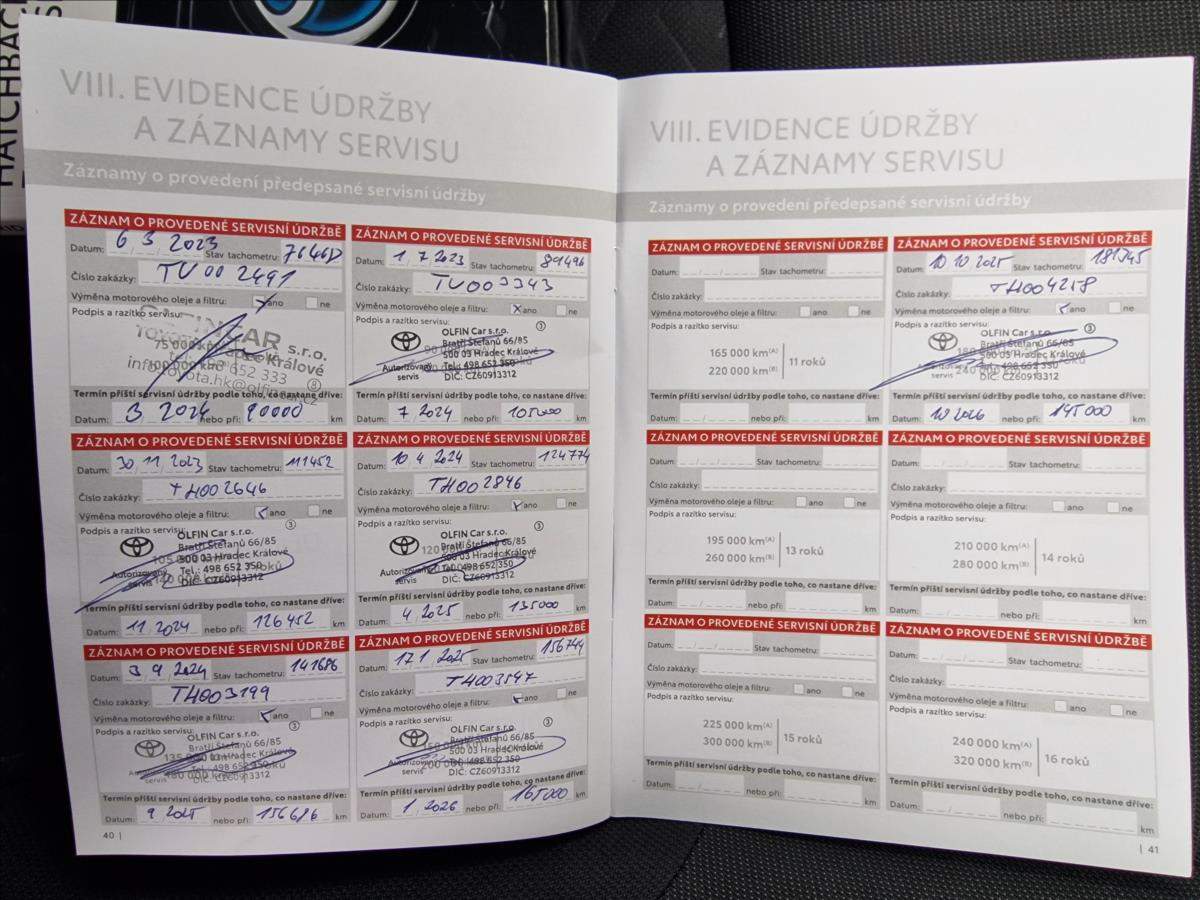 HATCHBAC
VIII. EVIDENCE ÚDRŽBY
A ZÁZNAMY SERVISU
Záznamy o provedení předepsané servisní údržby
ZÁZNAM O PROVEDENÉ SERVISNÍ ÚDRŽBĚ
Datum: 6 3 2023 Stav tachometru:
Číslo zakázky: TU00 2491
Výměna motorového oleje a filtru: ano ne
Podpis a razítko servisu:
OLFIN CAR s.r.o.
75 000 km
652 333
Termín příští servisní údržby podle toho, co nastane dříve:
Datum: 3 2024 nebo při: 90000 km
ZÁZNAM O PROVEDENÉ SERVISNÍ ÚDRŽBĚ
Datum: 1 7 2023 Stav tachometru: 89496
Číslo zakázky: TU003343
Výměna motorového oleje a filtru: X ano ne
Podpis a razítko servisu:
OLFIN Car s.r.o. 3
Bratří Štefanů 66/85
500 03 Hradec Králové
Autorizovaný Tel.: 498 652 350
servis DIČ: CZ60913312
Termín příští servisní údržby podle toho, co nastane dříve:
Datum: 7 2024 nebo při: 105000 km
ZÁZNAM O PROVEDENÉ SERVISNÍ ÚDRŽBĚ
Datum: 30 11 2023 Stav tachometru: 111452
Číslo zakázky: TH002646
Výměna motorového oleje a filtru: ano ne
Podpis a razítko servisu:
OLFIN Car s.r.o. 3
Bratří Štefanů 66/85
500 03 Hradec Králové
Autorizovaný Tel.: 498 652 350
servis DIČ: CZ60913312
Termín příští servisní údržby podle toho, co nastane dříve:
Datum: 11 2024 nebo při: 126452 km
ZÁZNAM O PROVEDENÉ SERVISNÍ ÚDRŽBĚ
Datum: 10 4 2024 Stav tachometru: 124774
Číslo zakázky: TH002846
Výměna motorového oleje a filtru: ano ne
Podpis a razítko servisu:
OLFIN Car s.r.o. 3
Bratří Štefanů 66/85
500 03 Hradec Králové
Autorizovaný Tel.: 498 652 350
servis DIČ: CZ60913312
Termín příští servisní údržby podle toho, co nastane dříve:
Datum: 4 2025 nebo při: 135000 km
ZÁZNAM O PROVEDENÉ SERVISNÍ ÚDRŽBĚ
Datum: 3 9 2024 Stav tachometru: 141686
Číslo zakázky: TH003199
Výměna motorového oleje a filtru: ano ne
Podpis a razítko servisu:
OLFIN Car s.r.o. 3
Bratří Štefanů 66/85
500 03 Hradec Králové
Tel.: 498 652 350
servis DIČ: CZ60913312
Termín příští servisní údržby podle toho, co nastane dříve:
Datum: 9 2025 nebo při: 156686 km
ZÁZNAM O PROVEDENÉ SERVISNÍ ÚDRŽBĚ
Datum: 17 1 2025 Stav tachometru: 156744
Číslo zakázky: TH003597
Výměna motorového oleje a filtru: ano ne
Podpis a razítko servisu:
OLFIN Car s.r.o. 3
Bratří Štefanů 66/85
500 03 Hradec Králové
Autorizovaný Tel.: 498 652 350
servis DIČ: CZ60913312
Termín příští servisní údržby podle toho, co nastane dříve:
Datum: 1 2026 nebo při: 165000 km
40 |
VIII. EVIDENCE ÚDRŽBY
A ZÁZNAMY SERVISU
Záznamy o provedení předepsané servisní údržby
ZÁZNAM O PROVEDENÉ SERVISNÍ ÚDRŽBĚ
Datum: Stav tachometru:
Číslo zakázky:
Výměna motorového oleje a filtru: ano ne
Podpis a razítko servisu:
165 000 km(A)
220 000 km(B)
11 roků
Termín příští servisní údržby podle toho, co nastane dříve:
Datum: nebo při: km
ZÁZNAM O PROVEDENÉ SERVISNÍ ÚDRŽBĚ
Datum: 10 10 2025 Stav tachometru:
Číslo zakázky: TH004258
Výměna motorového oleje a filtru: ano ne
Podpis a razítko servisu:
OLFIN Car s.r.o. 3
Bratří Štefanů 66/85
500 03 Hradec Králové
Autorizovaný Tel.: 498 652 350
servis DIČ: CZ60913312
Termín příští servisní údržby podle toho, co nastane dříve:
Datum: 10 2026 nebo při: km
ZÁZNAM O PROVEDENÉ SERVISNÍ ÚDRŽBĚ
Datum: Stav tachometru:
Číslo zakázky:
Výměna motorového oleje a filtru: ano ne
Podpis a razítko servisu:
195 000 km(A)
260 000 km(B)
13 roků
Termín příští servisní údržby podle toho, co nastane dříve:
Datum: nebo při: km
ZÁZNAM O PROVEDENÉ SERVISNÍ ÚDRŽBĚ
Datum: Stav tachometru:
Číslo zakázky:
Výměna motorového oleje a filtru: ano ne
Podpis a razítko servisu:
210 000 km(A)
280 000 km(B)
14 roků
Termín příští servisní údržby podle toho, co nastane dříve:
Datum: nebo při: km
ZÁZNAM O PROVEDENÉ SERVISNÍ ÚDRŽBĚ
Datum: Stav tachometru:
Číslo zakázky:
Výměna motorového oleje a filtru: ano ne
Podpis a razítko servisu:
225 000 km(A)
300 000 km(B)
15 roků
Termín příští servisní údržby podle toho, co nastane dříve:
Datum: nebo při: km
ZÁZNAM O PROVEDENÉ SERVISNÍ ÚDRŽBĚ
Datum: Stav tachometru:
Číslo zakázky:
Výměna motorového oleje a filtru: ano ne
Podpis a razítko servisu:
240 000 km(A)
320 000 km(B)
16 roků
Termín příští servisní údržby podle toho, co nastane dříve:
Datum: nebo při: km
| 41